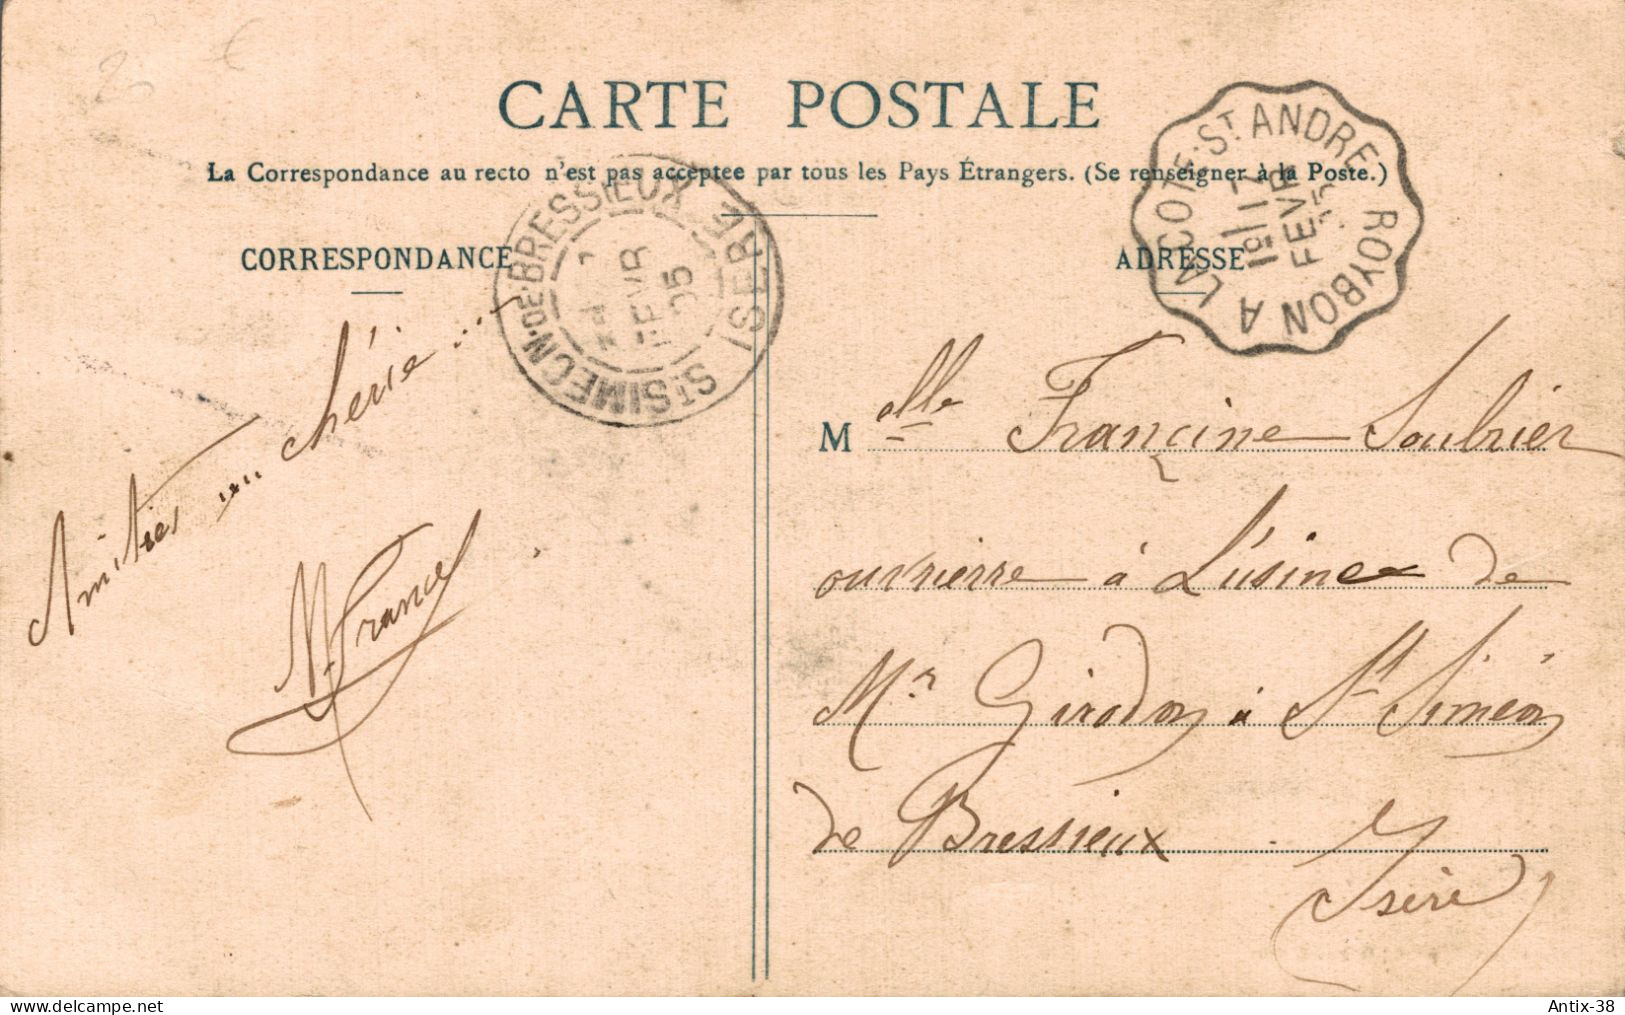 CARTE POSTALE
La Correspondance au recto n'est pas acceptée par tous les Pays Étrangers. (Se renseigner à la Poste.)
CORRESPONDANCE
ADRESSE
ST SIMEON-DE-BRESSIEUX
ISERE
FEVR
05
ROYBON A LA COTE-ST ANDRE
17
FEVR
05
Amitiés
chérie ...
M. France
Melle Francine Saubrier
ouvrierre à L'usine de
Mr Girodon à St Siméon
de Bressieux
Isère
delcampe.net
Antix-38